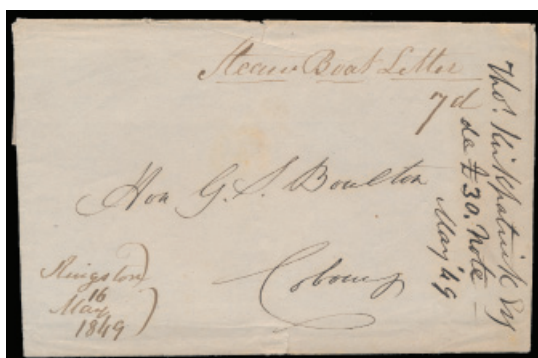 Steam Boat Letter
7d
Hon G. S. Boulton
Cobourg
Kingston
16
May
1849
Thos. Kirkpatrick Esq
de £30. Note —
May '49